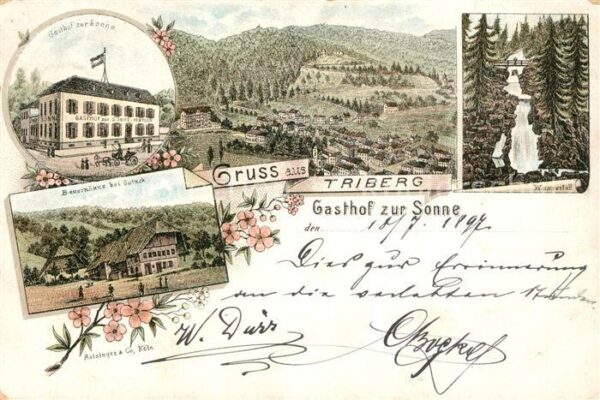 Gasthof zur Sonne
GASTHOF zur SONNE
Wasserfall
Gruss aus
TRIBERG
Bauernhäuser bei Gutach
Gasthof zur Sonne
den 10/7. 1897.
Dies zur Erinnerung
an die verlebten
W. Dürr
Co, Köln